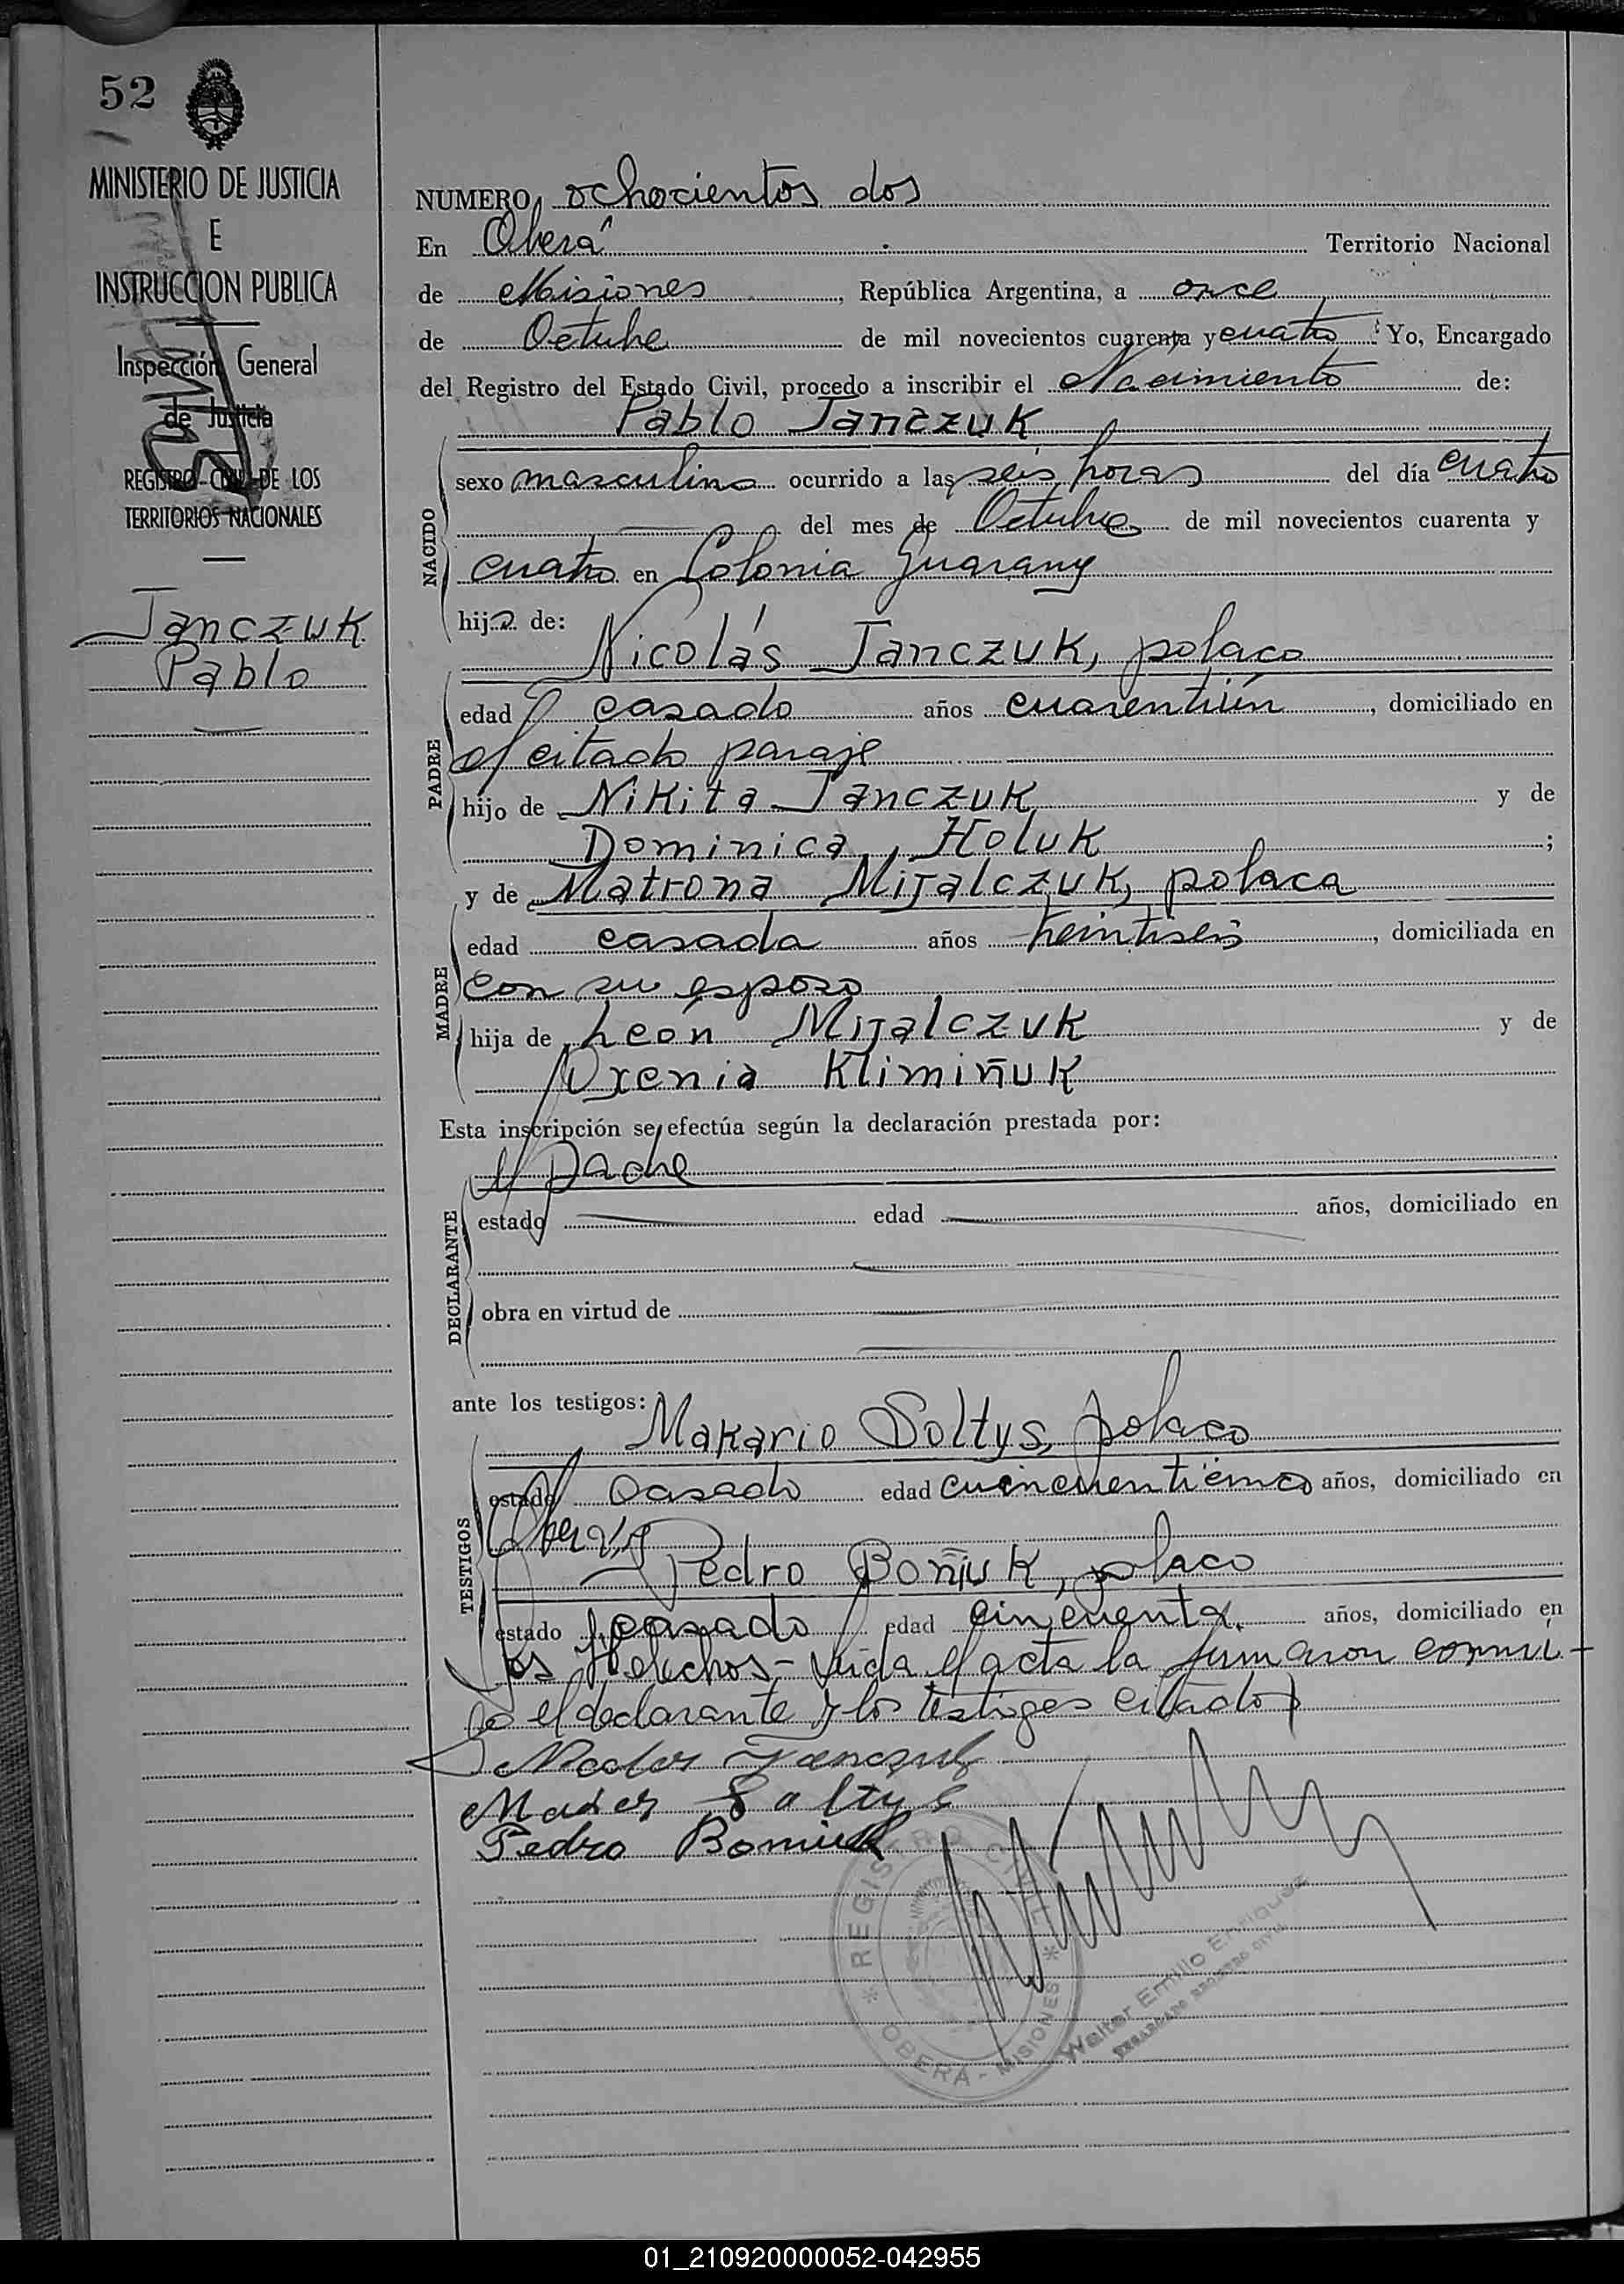 52
MINISTERIO DE JUSTICIA
E
INSTRUCCION PUBLICA
Inspección General
de Justicia
REGISTRO CIVIL DE LOS
TERRITORIOS NACIONALES
Janczuk
Pablo
NUMERO ochocientos dos
En Oberá Territorio Nacional
de Misiones, República Argentina, a once
de Octubre de mil novecientos cuarenta y cuatro Yo, Encargado
del Registro del Estado Civil, procedo a inscribir el Nacimiento de:
Pablo Janczuk
NACIDO
sexo masculino ocurrido a las seis horas del día cuatro
del mes de Octubre de mil novecientos cuarenta y
cuatro en Colonia Guarany
hijo de:
Nicolás Janczuk, polaco
PADRE
edad casado años cuarentiún, domiciliado en
el citado paraje
hijo de Nikita Janczuk y de
Dominica Holuk;
y de Matrona Mijalczuk, polaca
MADRE
edad casada años treintiseis, domiciliada en
con su esposo
hija de León Mijalczuk y de
Oxenia Klimiñuk
Esta inscripción se efectúa según la declaración prestada por:
el padre
DECLARANTE
estado edad años, domiciliado en
obra en virtud de
ante los testigos:
Makario Soltys, polaco
TESTIGOS
estado Casado edad años, domiciliado en
Oberá
Pedro Boñiuk, polaco
estado casado edad cincuenta años, domiciliado en
los Helechos - Leida el acta la firmaron conmi-
go el declarante y los testigos citados
Janczuk
Soltys
Pedro Boniuk
REGISTRO CIVIL
OBERA - MISIONES
Walter Emilio Enriquez
ENCARGADO REGISTRO CIVIL
01_210920000052-042955